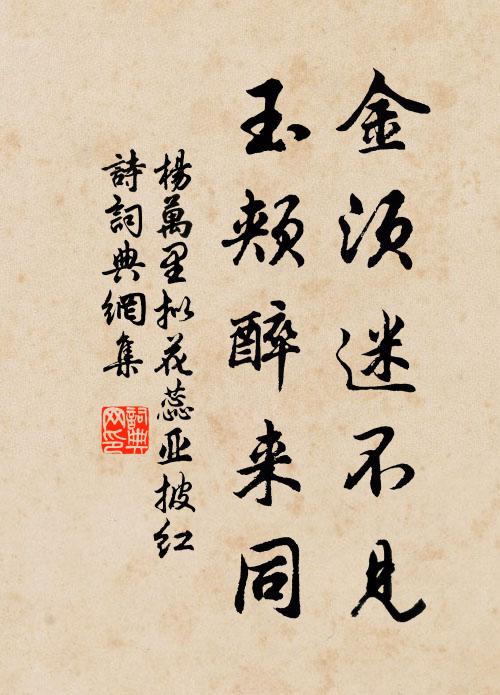 金须迷不見
玉颊醉来同
楊萬里拟花蕊亚披红
詩詞典網集
詞典
网印